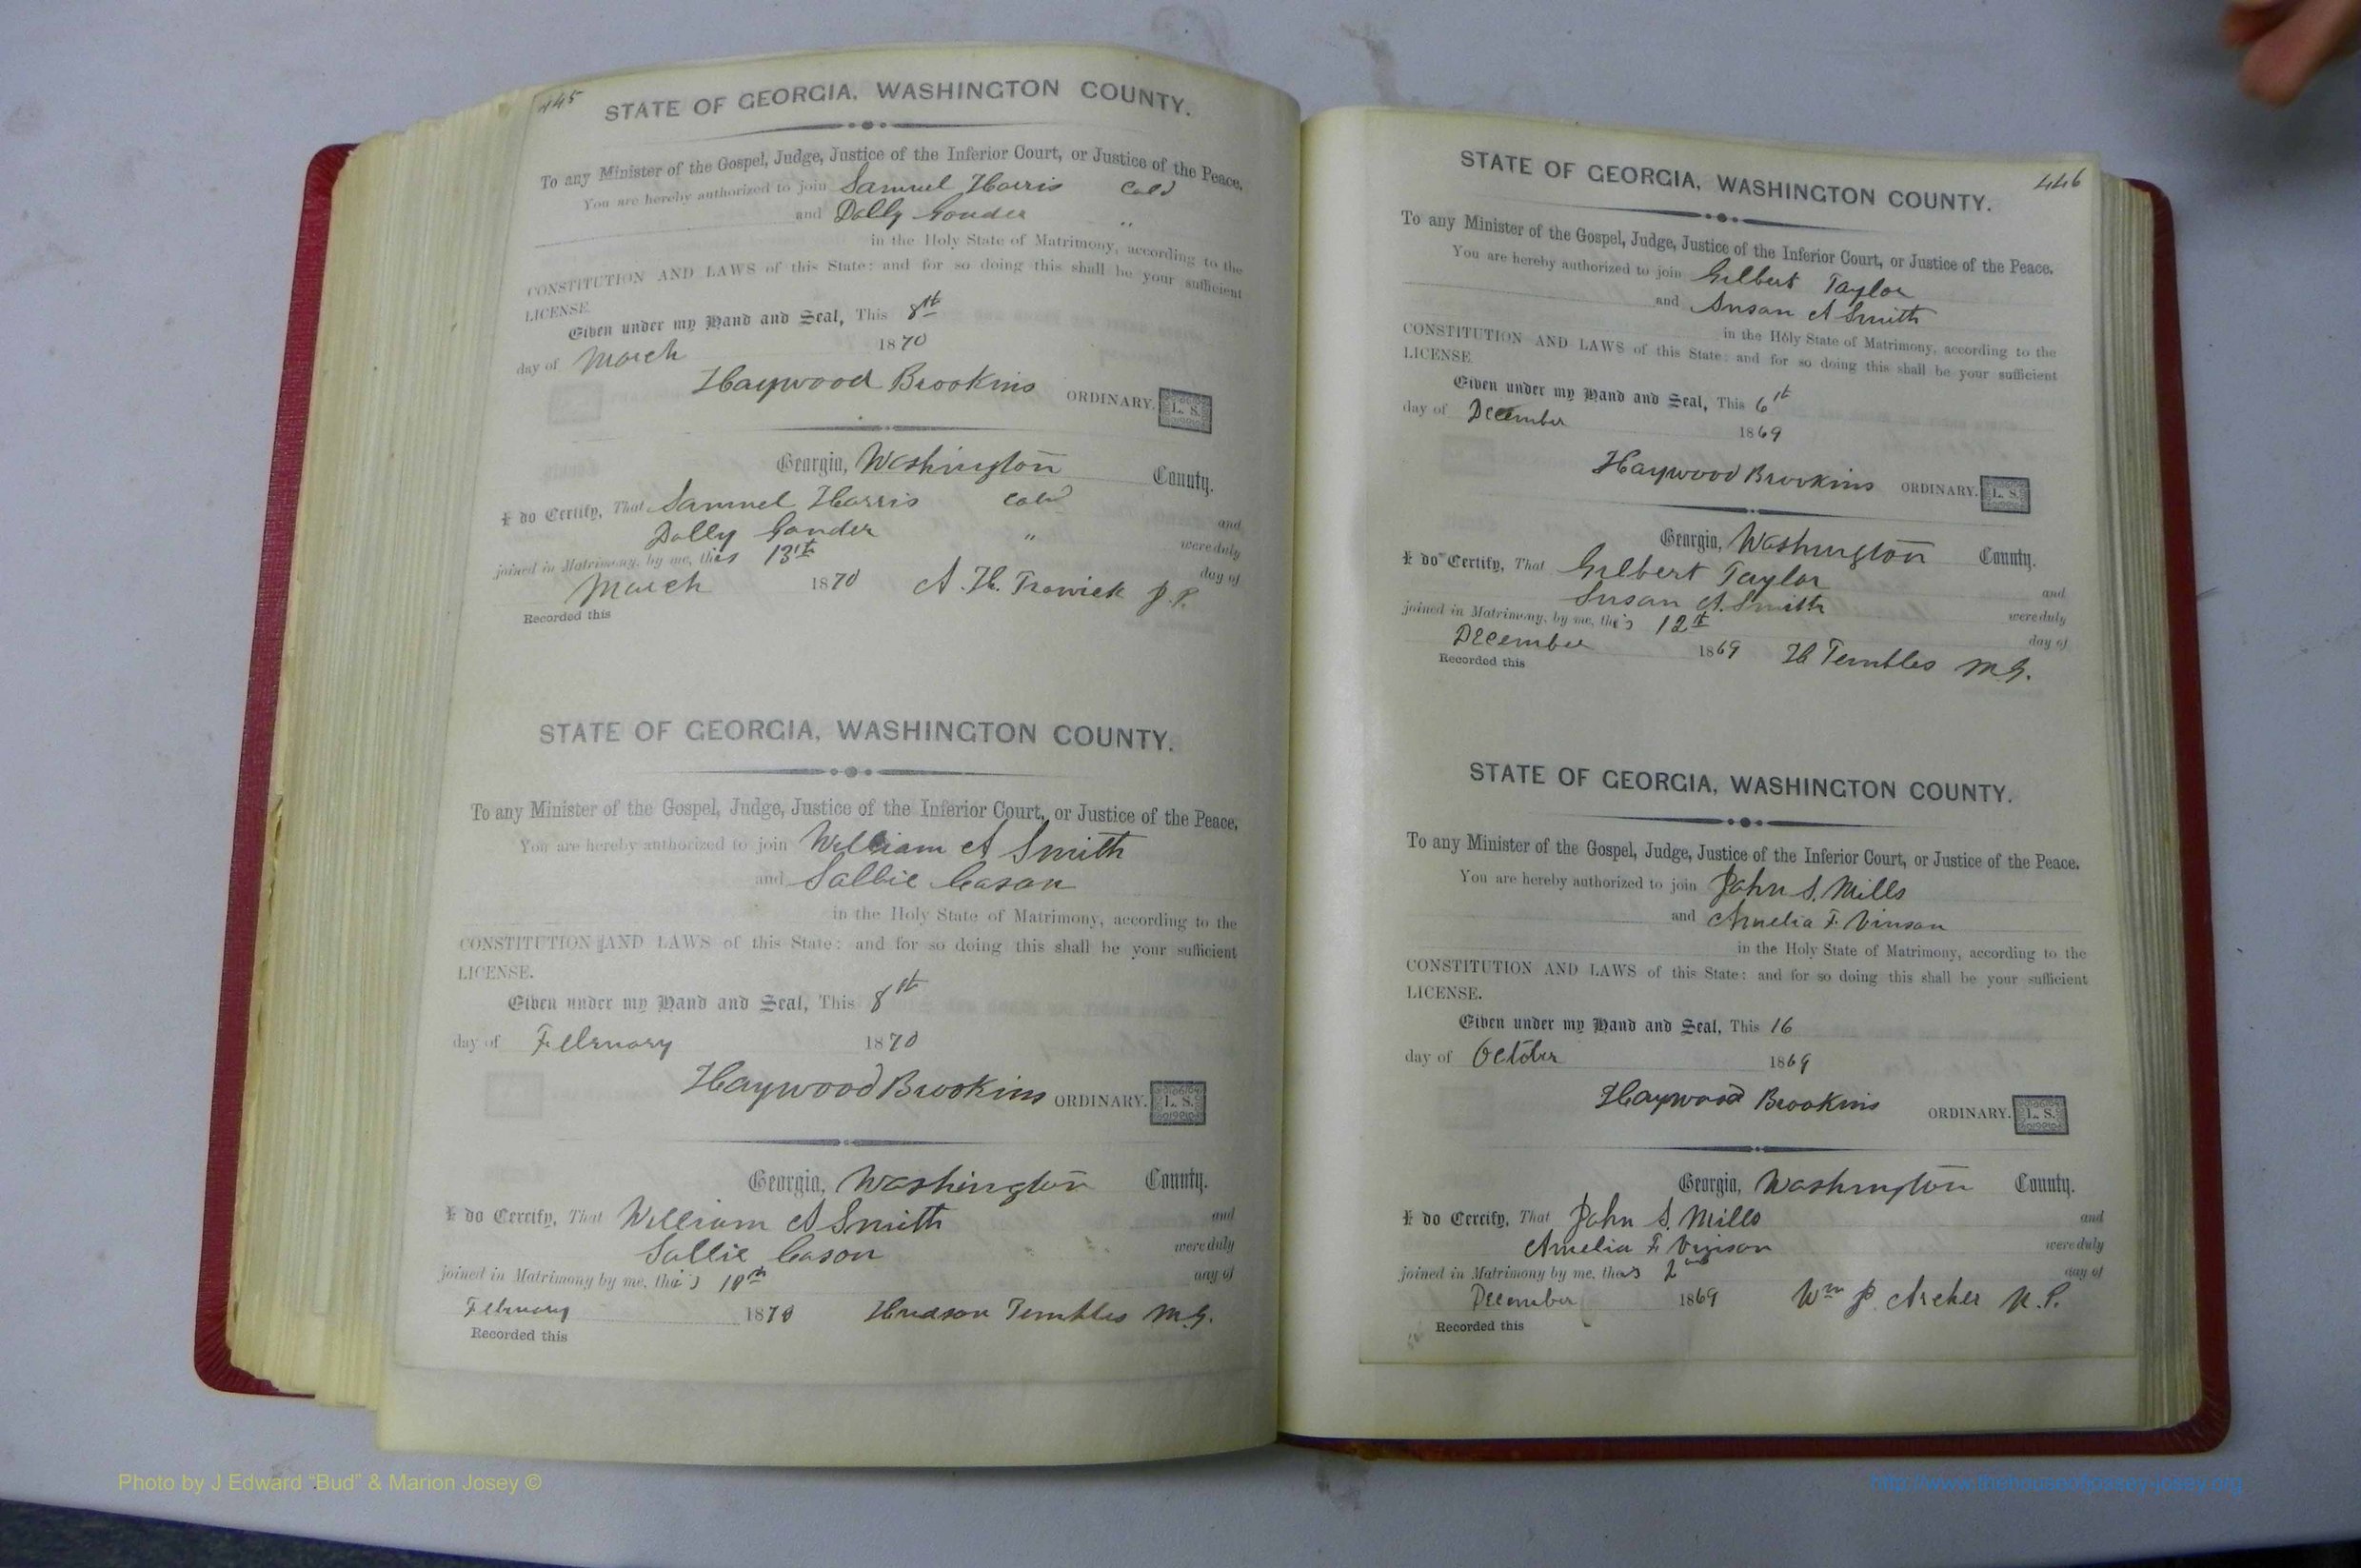 445
STATE OF GEORGIA, WASHINGTON COUNTY.
To any Minister of the Gospel, Judge, Justice of the Inferior Court, or Justice of the Peace.
You are hereby authorized to join Samuel Harris Cold
and Dolly Gonder "
in the Holy State of Matrimony, according to the
CONSTITUTION AND LAWS of this State: and for so doing this shall be your sufficient
LICENSE.
Given under my Hand and Seal, This 8th
day of March 1870
Haywood Brookins ORDINARY. L. S.
Georgia, Washington County.
I do Certify, That Samuel Harris Cold and
Dolly Gonder " were duly
joined in Matrimony, by me, this 13th day of
March 1870 A. H. Trawick J. P.
Recorded this
STATE OF GEORGIA, WASHINGTON COUNTY.
To any Minister of the Gospel, Judge, Justice of the Inferior Court, or Justice of the Peace.
You are hereby authorized to join William A Smith
and Sallie Cason
in the Holy State of Matrimony, according to the
CONSTITUTION AND LAWS of this State: and for so doing this shall be your sufficient
LICENSE.
Given under my Hand and Seal, This 8th
day of February 1870
Haywood Brookins ORDINARY. L. S.
Georgia, Washington County.
I do Certify, That William A Smith and
Sallie Cason were duly
joined in Matrimony by me, this 10th day of
February 1870 Hudson Tembles M.G.
Recorded this
446
STATE OF GEORGIA, WASHINGTON COUNTY.
To any Minister of the Gospel, Judge, Justice of the Inferior Court, or Justice of the Peace.
You are hereby authorized to join Gilbert Taylor
and Susan A Smith
in the Holy State of Matrimony, according to the
CONSTITUTION AND LAWS of this State: and for so doing this shall be your sufficient
LICENSE
Given under my Hand and Seal, This 6th
day of December 1869
Haywood Brookins ORDINARY. L. S.
Georgia, Washington County.
I do Certify, That Gilbert Taylor and
Susan A. Smith were duly
joined in Matrimony, by me, this 12th day of
December 1869 H Tembles M.G.
Recorded this
STATE OF GEORGIA, WASHINGTON COUNTY.
To any Minister of the Gospel, Judge, Justice of the Inferior Court, or Justice of the Peace.
You are hereby authorized to join John S. Mills
and Amelia F. Vinson
in the Holy State of Matrimony, according to the
CONSTITUTION AND LAWS of this State: and for so doing this shall be your sufficient
LICENSE.
Given under my Hand and Seal, This 16
day of October 1869
Haywood Brookins ORDINARY. L. S.
Georgia, Washington County.
I do Certify, That John S. Mills and
Amelia F. Vinson were duly
joined in Matrimony by me, this 2nd day of
December 1869 Wm P. Archer N.P.
Recorded this
Photo by J Edward “Bud” & Marion Josey ©
http://www.thehouseofjossey-josey.org